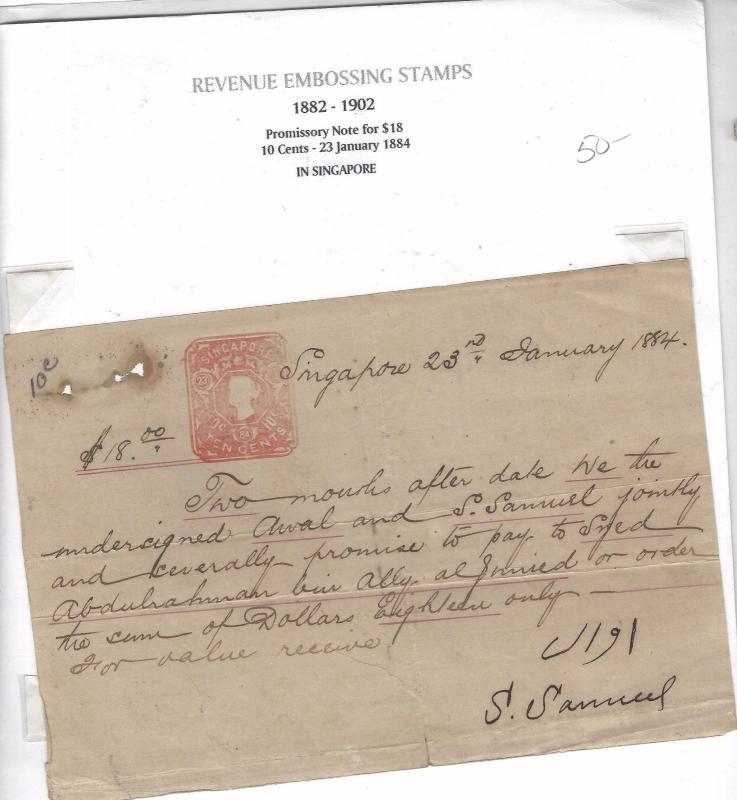 REVENUE EMBOSSING STAMPS
1882 - 1902
Promissory Note for $18
10 Cents - 23 January 1884
IN SINGAPORE
50-
10c
SINGAPORE
23
10C 84 10C
TEN CENTS
Singapore 23rd January 1884.
$18.00
Two months after date We the
undersigned Awal and S. Samuel jointly
and severally promise to pay to Syed
Abdulrahman bin Ally al Junied or order
the sum of Dollars Eighteen only
For value receive
اوال
S. Samuel